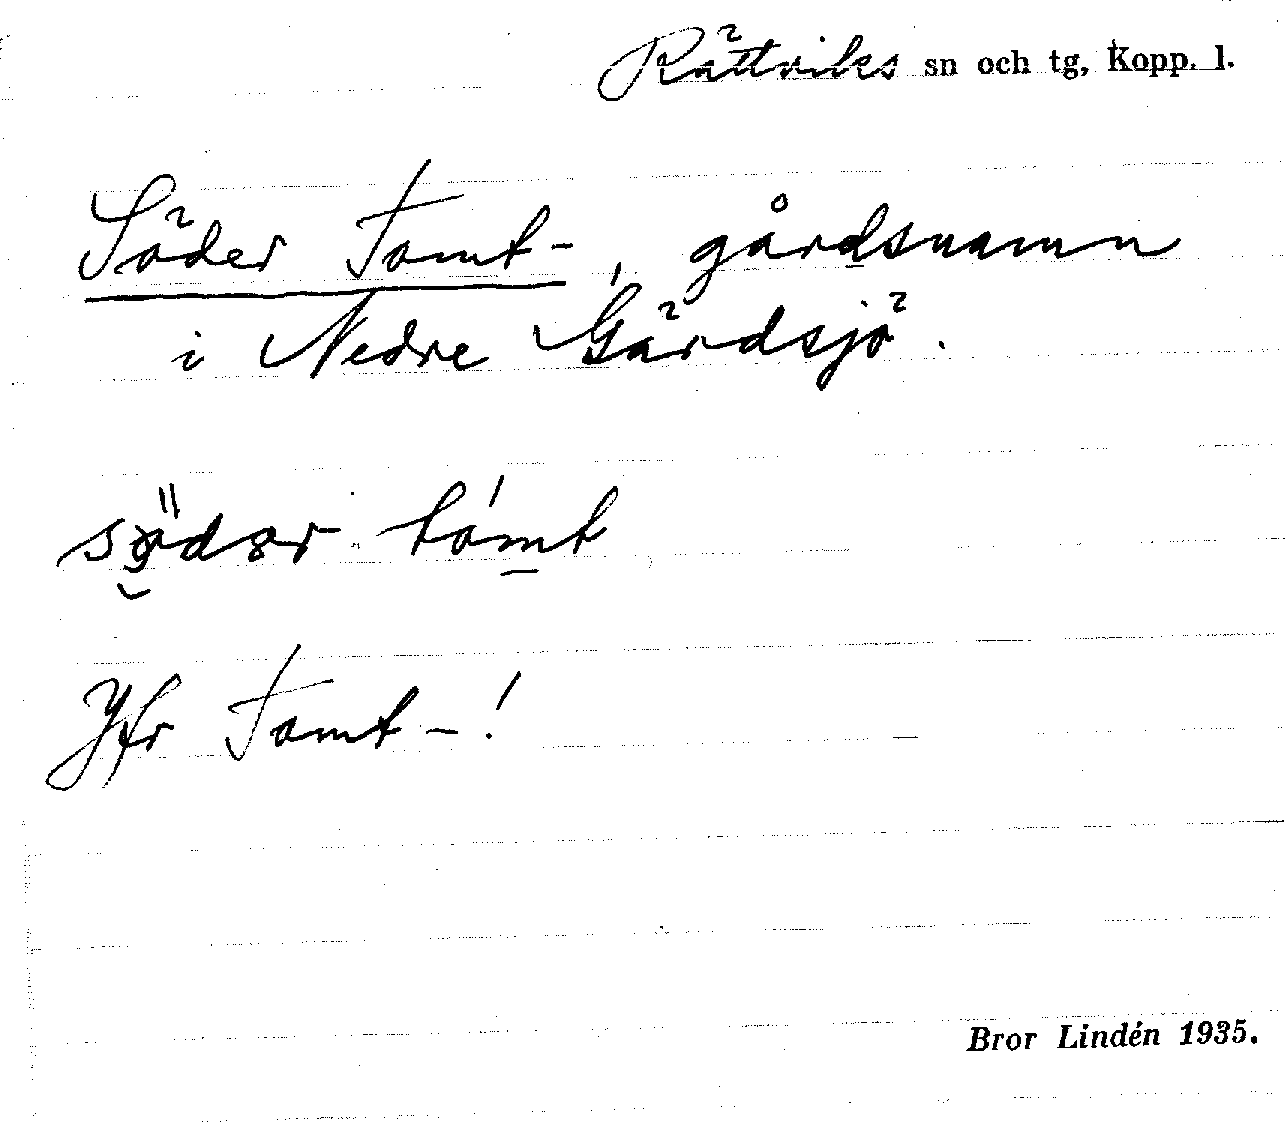 Rättviks sn och tg, Kopp. l.
Söder Tomt-, gårdsnamn
i Nedre Gärdsjö.
tómt
Jfr Tomt-!
Bror Lindén 1935.